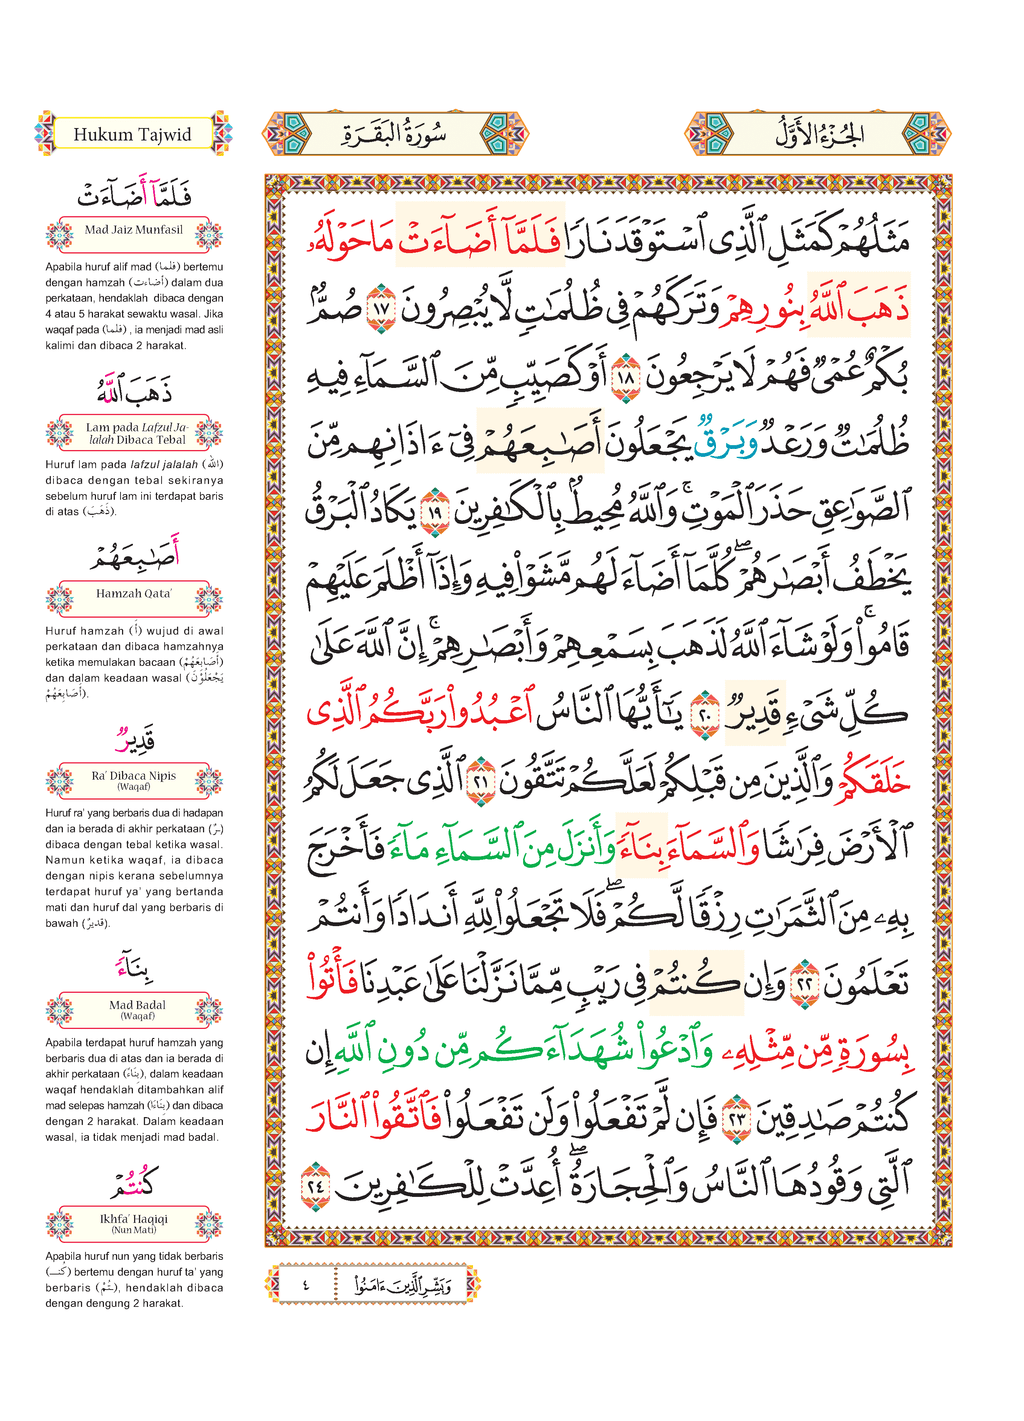 Hukum Tajwid
سُورَةُ الْبَقَرَةِ
الْجُزْءُ الْأَوَّلُ
مَثَلُهُمْ كَمَثَلِ ٱلَّذِى ٱسْتَوْقَدَ نَارًا فَلَمَّآ أَضَآءَتْ مَا حَوْلَهُۥ
ذَهَبَ ٱللَّهُ بِنُورِهِمْ وَتَرَكَهُمْ فِى ظُلُمَٰتٍ لَّا يُبْصِرُونَ ١٧ صُمٌّۢ
بُكْمٌ عُمْىٌ فَهُمْ لَا يَرْجِعُونَ ١٨ أَوْ كَصَيِّبٍ مِّنَ ٱلسَّمَآءِ فِيهِ
ظُلُمَٰتٌ وَرَعْدٌ وَبَرْقٌ يَجْعَلُونَ أَصَٰبِعَهُمْ فِىٓ ءَاذَانِهِم مِّنَ
ٱلصَّوَٰعِقِ حَذَرَ ٱلْمَوْتِ ۚ وَٱللَّهُ مُحِيطٌۢ بِٱلْكَٰفِرِينَ ١٩ يَكَادُ ٱلْبَرْقُ
يَخْطَفُ أَبْصَٰرَهُمْ ۖ كُلَّمَآ أَضَآءَ لَهُم مَّشَوْا۟ فِيهِ وَإِذَآ أَظْلَمَ عَلَيْهِمْ
قَامُوا۟ ۚ وَلَوْ شَآءَ ٱللَّهُ لَذَهَبَ بِسَمْعِهِمْ وَأَبْصَٰرِهِمْ ۚ إِنَّ ٱللَّهَ عَلَىٰ
كُلِّ شَىْءٍ قَدِيرٌ ٢٠ يَٰٓأَيُّهَا ٱلنَّاسُ ٱعْبُدُوا۟ رَبَّكُمُ ٱلَّذِى
خَلَقَكُمْ وَٱلَّذِينَ مِن قَبْلِكُمْ لَعَلَّكُمْ تَتَّقُونَ ٢١ ٱلَّذِى جَعَلَ لَكُمُ
ٱلْأَرْضَ فِرَٰشًا وَٱلسَّمَآءَ بِنَآءً وَأَنزَلَ مِنَ ٱلسَّمَآءِ مَآءً فَأَخْرَجَ
بِهِۦ مِنَ ٱلثَّمَرَٰتِ رِزْقًا لَّكُمْ ۖ فَلَا تَجْعَلُوا۟ لِلَّهِ أَندَادًا وَأَنتُمْ
تَعْلَمُونَ ٢٢ وَإِن كُنتُمْ فِى رَيْبٍ مِّمَّا نَزَّلْنَا عَلَىٰ عَبْدِنَا فَأْتُوا۟
بِسُورَةٍ مِّن مِّثْلِهِۦ وَٱدْعُوا۟ شُهَدَآءَكُم مِّن دُونِ ٱللَّهِ إِن
كُنتُمْ صَٰدِقِينَ ٢٣ فَإِن لَّمْ تَفْعَلُوا۟ وَلَن تَفْعَلُوا۟ فَٱتَّقُوا۟ ٱلنَّارَ
ٱلَّتِى وَقُودُهَا ٱلنَّاسُ وَٱلْحِجَارَةُ ۖ أُعِدَّتْ لِلْكَٰفِرِينَ ٢٤
٤ وَبَشِّرِ ٱلَّذِينَ ءَامَنُوا۟
فَلَمَّآ أَضَآءَتْ
Mad Jaiz Munfasil
Apabila huruf alif mad (فلما) bertemu
dengan hamzah (أضاءت) dalam dua
perkataan, hendaklah dibaca dengan
4 atau 5 harakat sewaktu wasal. Jika
waqaf pada (فلما) , ia menjadi mad asli
kalimi dan dibaca 2 harakat.
ذَهَبَ ٱللَّهُ
Lam pada Lafzul Ja-
lalah Dibaca Tebal
Huruf lam pada lafzul jalalah (الله)
dibaca dengan tebal sekiranya
sebelum huruf lam ini terdapat baris
di atas (ذَهَبَ).
أَصَٰبِعَهُمْ
Hamzah Qata'
Huruf hamzah (أَ) wujud di awal
perkataan dan dibaca hamzahnya
ketika memulakan bacaan (أَصَابِعَهُمْ)
dan dalam keadaan wasal (يَجْعَلُوْنَ
أَصَابِعَهُمْ).
قَدِيرٌ
Ra' Dibaca Nipis
(Waqaf)
Huruf ra' yang berbaris dua di hadapan
dan ia berada di akhir perkataan (ـرٌ)
dibaca dengan tebal ketika wasal.
Namun ketika waqaf, ia dibaca
dengan nipis kerana sebelumnya
terdapat huruf ya' yang bertanda
mati dan huruf dal yang berbaris di
bawah (قديرٌ).
بِنَآءً
Mad Badal
(Waqaf)
Apabila terdapat huruf hamzah yang
berbaris dua di atas dan ia berada di
akhir perkataan (بِنَاءً), dalam keadaan
waqaf hendaklah ditambahkan alif
mad selepas hamzah (بِنَاءَا) dan dibaca
dengan 2 harakat. Dalam keadaan
wasal, ia tidak menjadi mad badal.
كُنتُمْ
Ikhfa' Haqiqi
(Nun Mati)
Apabila huruf nun yang tidak berbaris
(كُنـ) bertemu dengan huruf ta' yang
berbaris (ـتُمْ), hendaklah dibaca
dengan dengung 2 harakat.